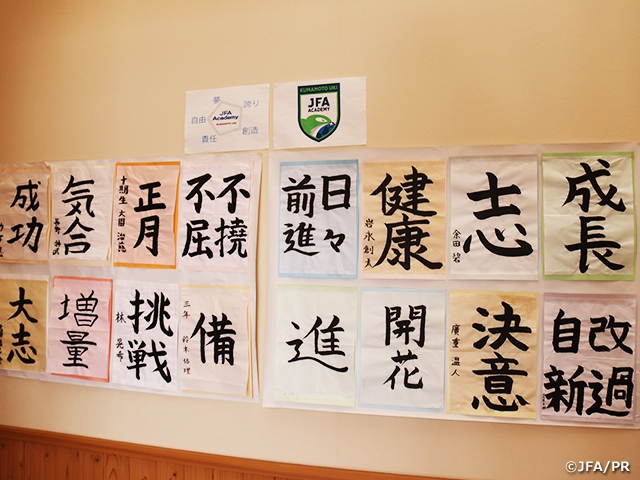 夢
誇り
自由
JFA
Academy
KUMAMOTO UKI
責任
創造
KUMAMOTO UKI
JFA
ACADEMY
成功
気合
正月
十期生
不撓
不屈
日々
前進
健康
岩永創太
志
余田 碧
成長
大志
増量
挑戦
林 晃希
備
三年
進
開花
決意
廣重 温人
改過
自新
©JFA/PR